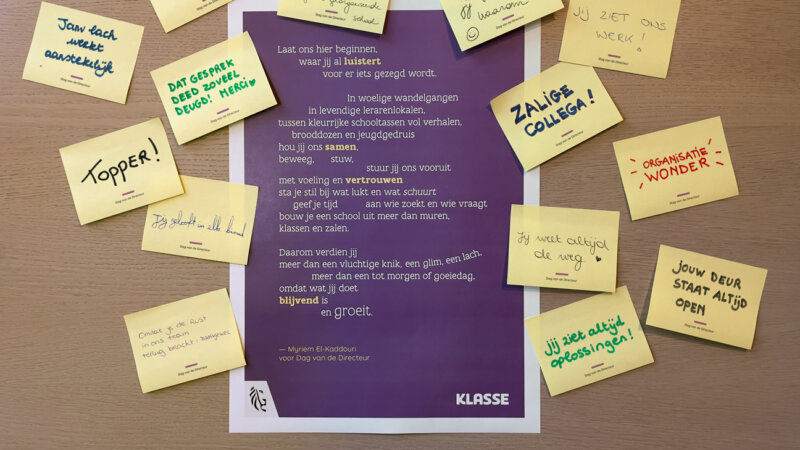 Jouw lach
werkt
aanstekelijk
Dag van de Directeur
school
waarom
JIJ ZIET ONS
WERK!
Dag van de Directeur
DAT GESPREK
DEED ZOVEEL
DEUGD! MERCI
Dag van de Directeur
TOPPER!
Dag van de Directeur
Jij gelooft in elk kind
Dag van de Directeur
Omdat je de rust
in ons team
terug bracht
Dag van de Directeur
Laat ons hier beginnen,
waar jij al luistert
voor er iets gezegd wordt.
In woelige wandelgangen
in levendige lerarenlokalen,
tussen kleurrijke schooltassen vol verhalen,
brooddozen en jeugdgedruis
hou jij ons samen,
beweeg, stuw,
stuur jij ons vooruit
met voeling en vertrouwen
sta je stil bij wat lukt en wat schuurt
geef je tijd aan wie zoekt en wie vraagt
bouw je een school uit meer dan muren,
klassen en zalen.
Daarom verdien jij
meer dan een vluchtige knik, een glim, een lach,
meer dan een tot morgen of goeiedag,
omdat wat jij doet
blijvend is
en groeit.
— Myriem El-Kaddouri
voor Dag van de Directeur
KLASSE
ZALIGE
COLLEGA!
Dag van de Directeur
ORGANISATIE
WONDER
Dag van de Directeur
Jij weet altijd
de weg
Dag van de Directeur
JOUW DEUR
STAAT ALTIJD
OPEN
Dag van de Directeur
jij ziet altijd
oplossingen!
Dag van de Directeur